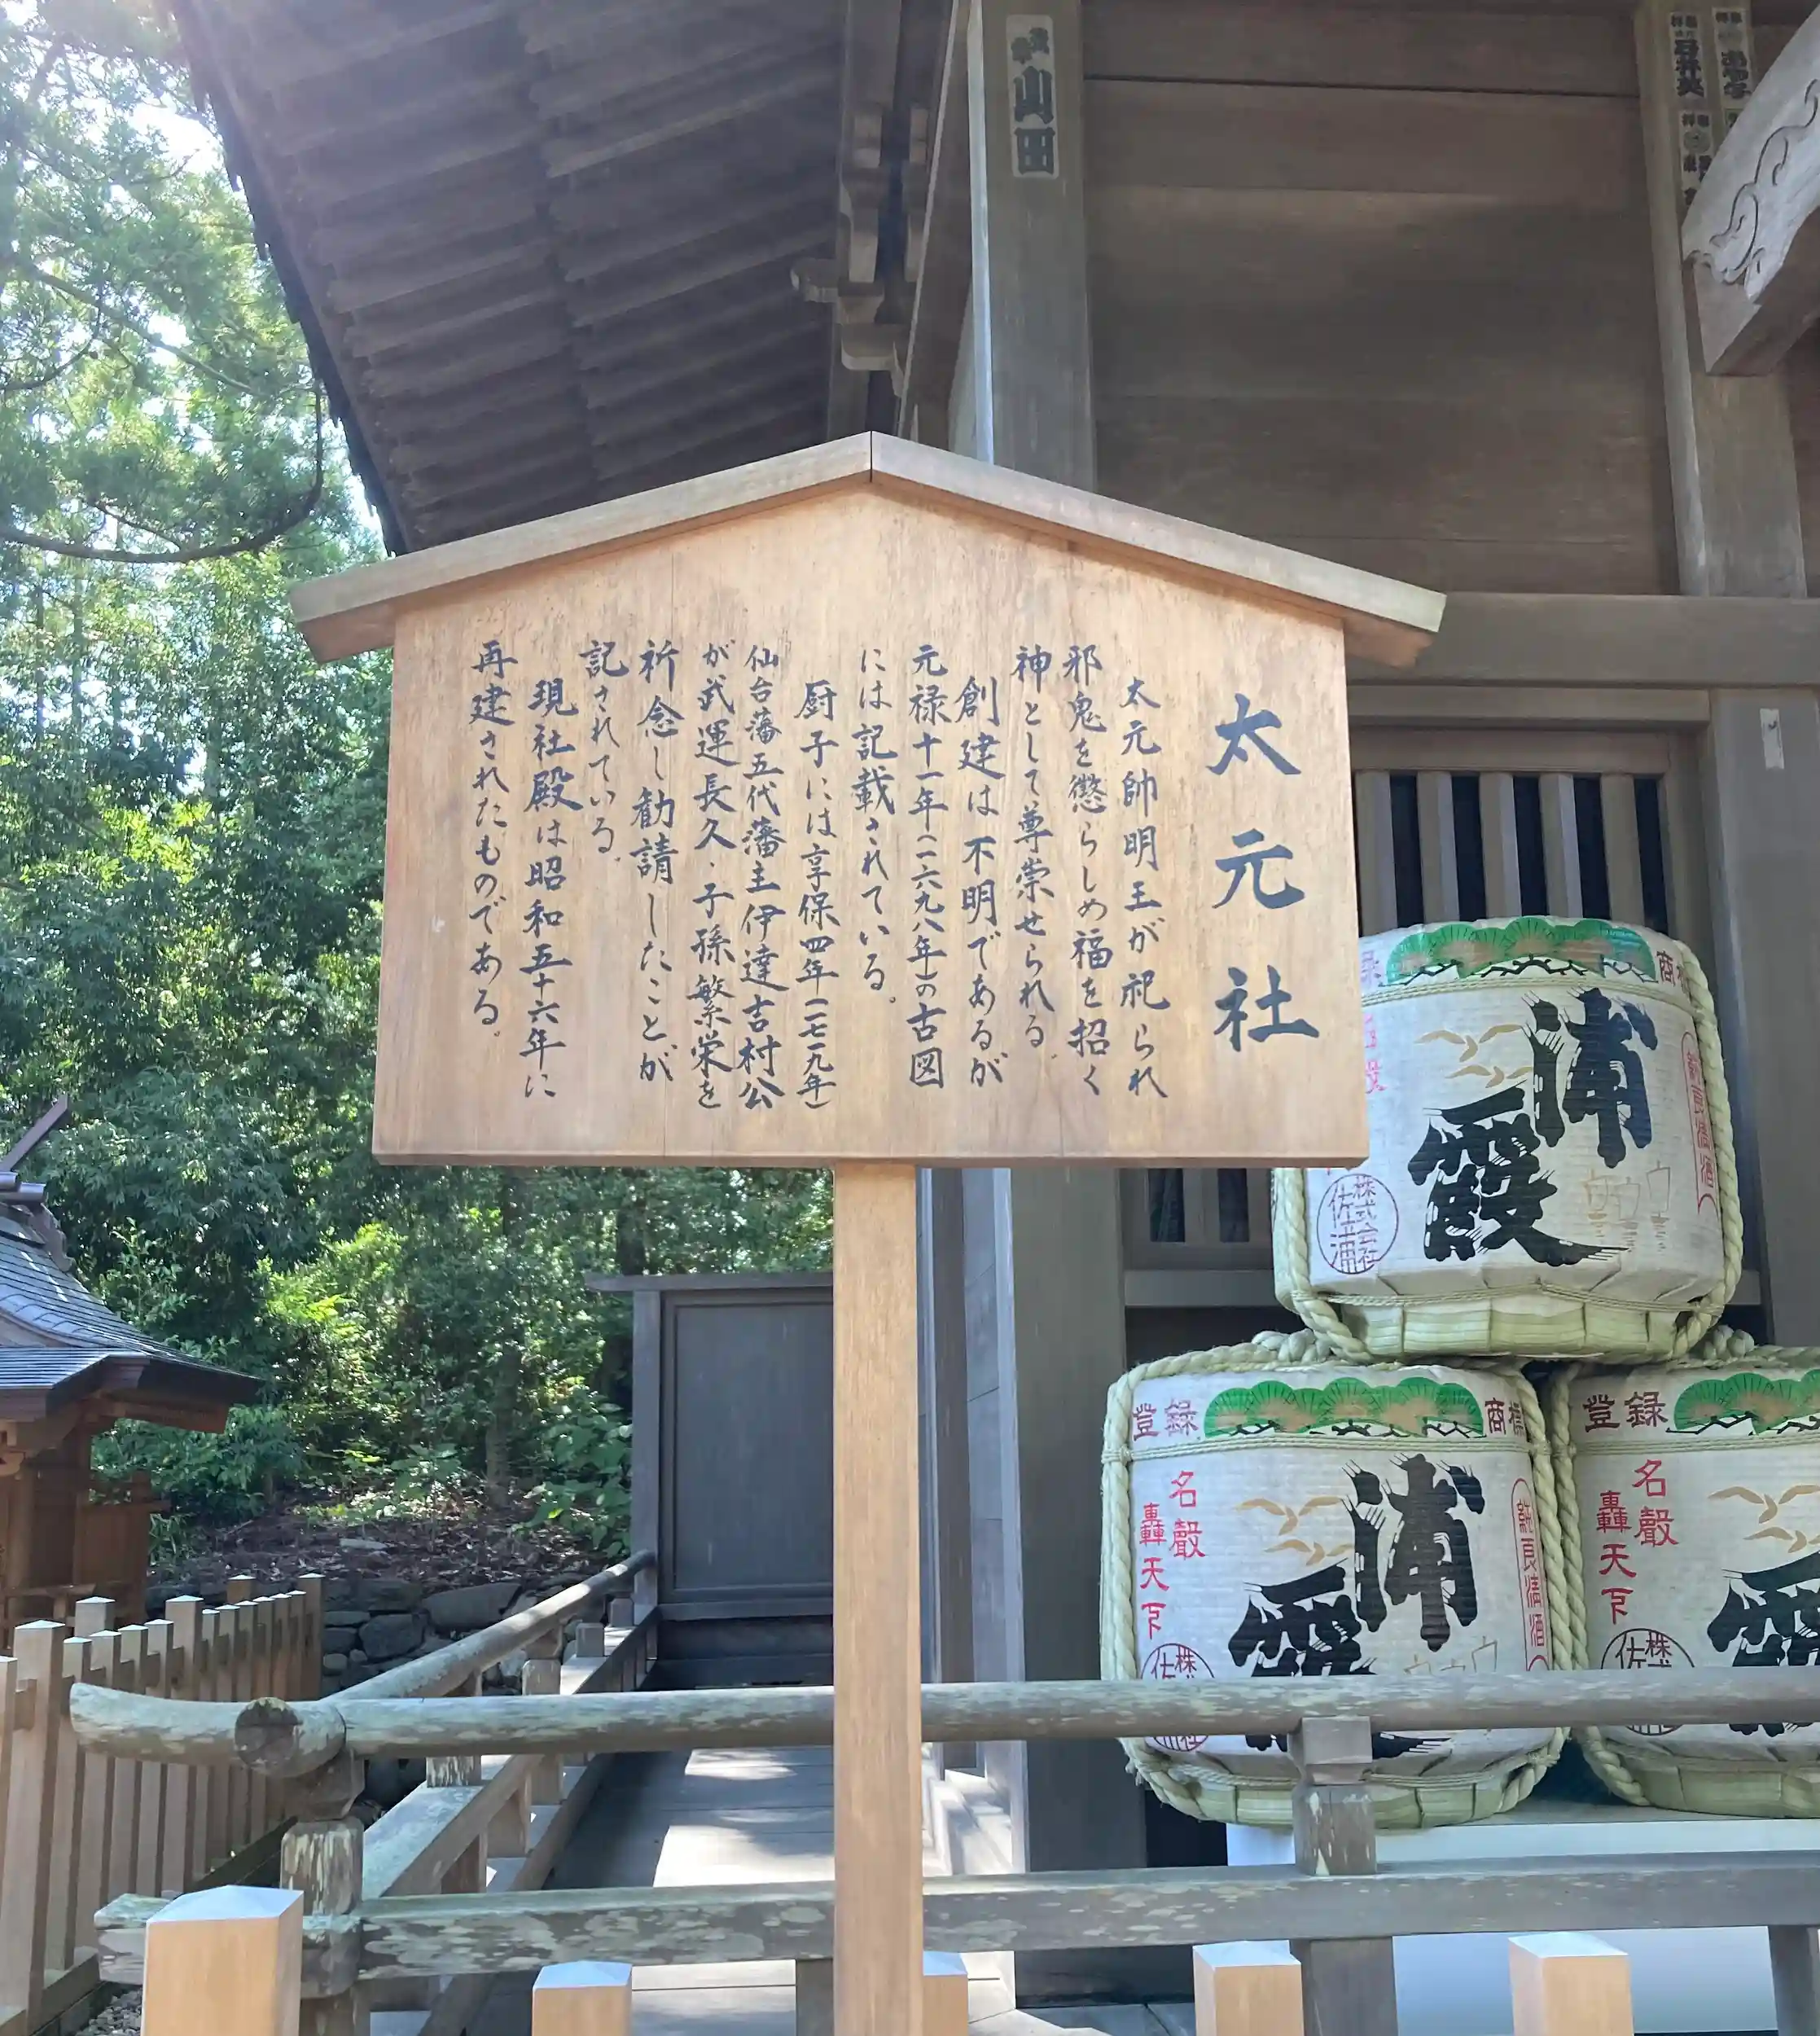 太元社
太元帥明王が祀られ
邪鬼を懲らしめ福を招く
神として尊崇せられる。
創建は不明であるが
元禄十一年(一六九八年)の古図
には記載されている。
厨子には享保四年(一七一九年)
仙台藩五代藩主伊達吉村公
が武運長久・子孫繁栄を
祈念し勧請したことが
記されている。
現社殿は昭和五十六年に
再建されたものである。
山田
商標
浦霞
純良清酒
株式会社
佐浦
登録
商標
名聲
轟天下
浦霞
純良清酒
株式会社
佐
登録
名聲
轟天下
株式
佐